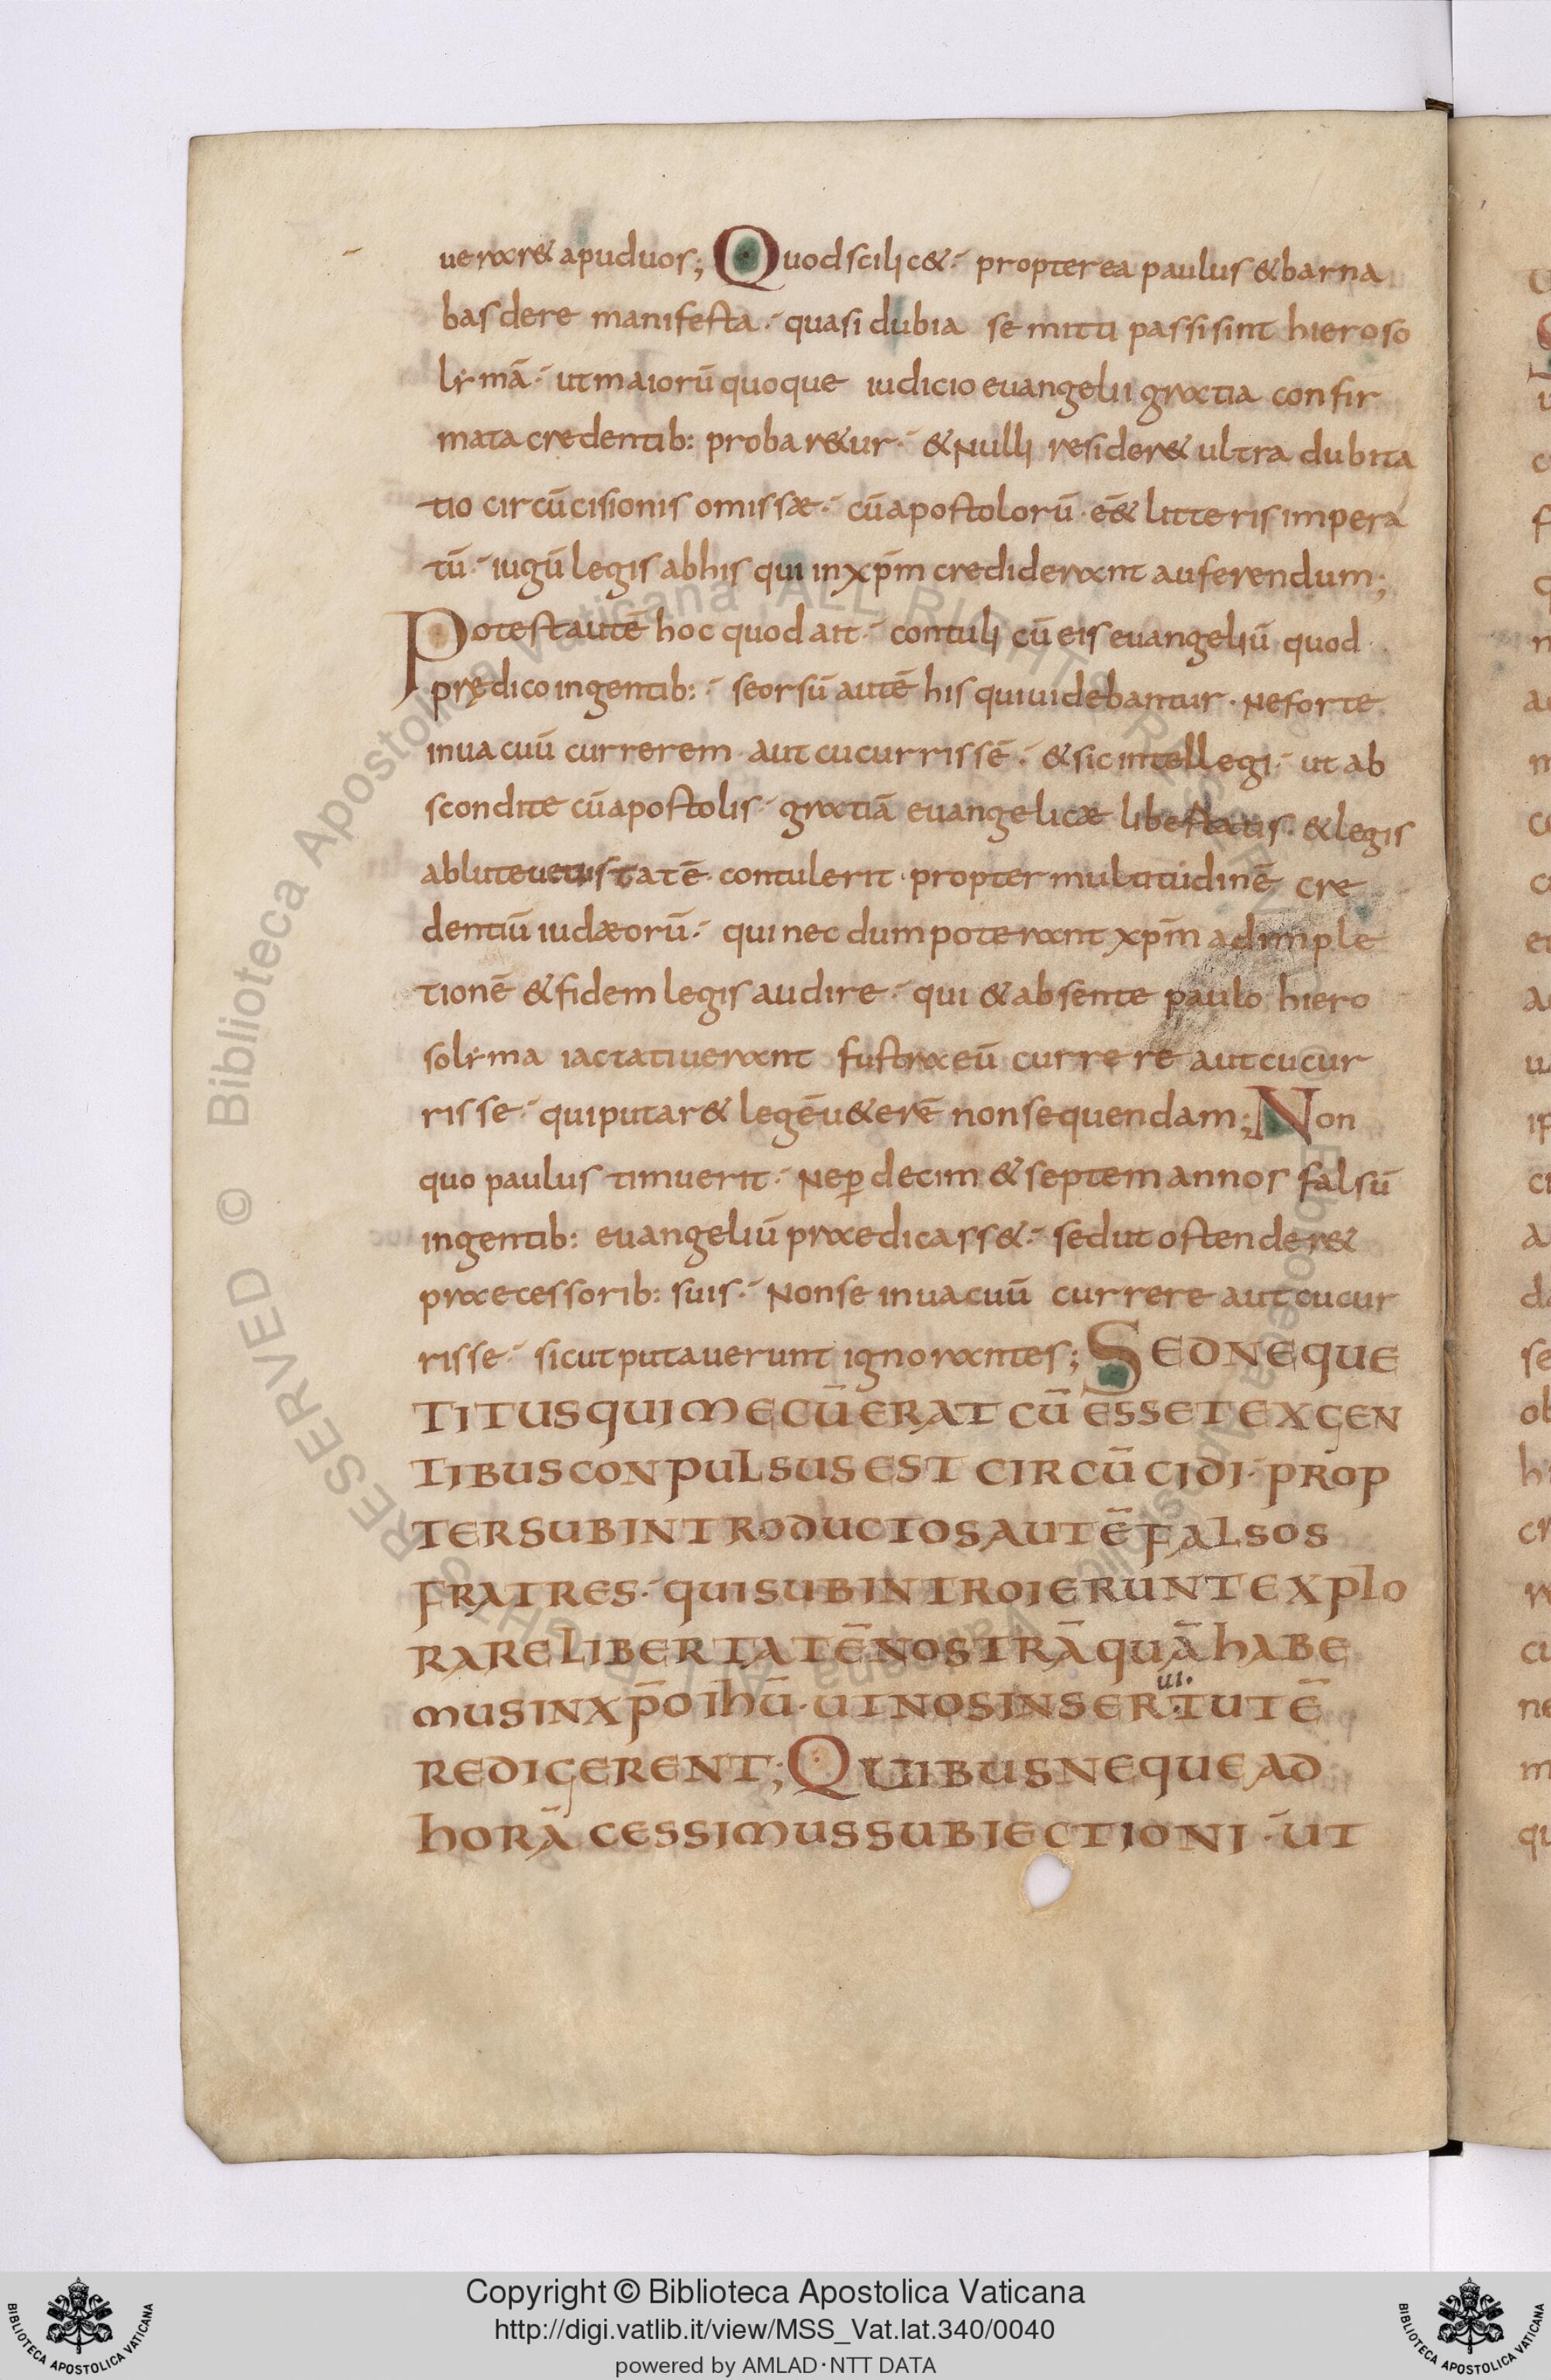 ueraxr& apuduos; Quodscilic& propterea paulus &barna
basdere manifesta quasi dubia se mitti passisint hieroso
lymā utmaiorū quoque iudicio euangelii gratia confir
mata credentib: probar&ur &nulli resider& ultra dubita
tio circūcisionis omissae cūapostolorū ē& litterisimpera
tū iugū legis abhis qui inxp̄m crediderant auferendum;
Potestautē hoc quod ait contuli cū eis euangeliū quod
prędico ingentib: seorsū autē his quiuidebantur. neforte
inuacuū currerem aut cucurrissē. &sic intellegi ut ab
scondite cūapostolis gratiā euangelicae libertatis. &legis
abluteuetustatē contulerit propter multitudinē cre
dentiū iudaeorū qui nec dum poterant xp̄m adimple
tionē &fidem legis audire qui &absente paulo hiero
solyma iactatiuerant fustra eū currere aut cucur
risse quiputar& legēu&erē nonsequendam; Non
quo paulus timuerit nep̱ decim &septem annos falsū
ingentib: euangeliū praedicass& sedut ostender&
praecessorib: suis. nonse inuacuū currere aut cucur
risse sicut putauerunt ignorantes; SEDNEQUE
TITUSQUIMECŪERAT CŪ ESSETEXGEN
TIBUSCONPULSUSEST CIRCŪCIDI PROP
TERSUBINTRODUCTOSAUTĒFALSOS
FRATRES. QUISUBINTROIERUNTEXPLO
RARELIBERTATĒNOSTRĀQUĀHABE
MUSINXP̄O IHŪ. UTNOSINSER.TUTĒ
ui.
REDIGERENT; QUIBUSNEQUEAD
HORĀ CESSIMUSSUBIECTIONI UT
Copyright © Biblioteca Apostolica Vaticana
http://digi.vatlib.it/view/MSS_Vat.lat.340/0040
powered by AMLAD·NTT DATA
BIBLIOTECA APOSTOLICA VATICANA
BIBLIOTECA APOSTOLICA VATICANA